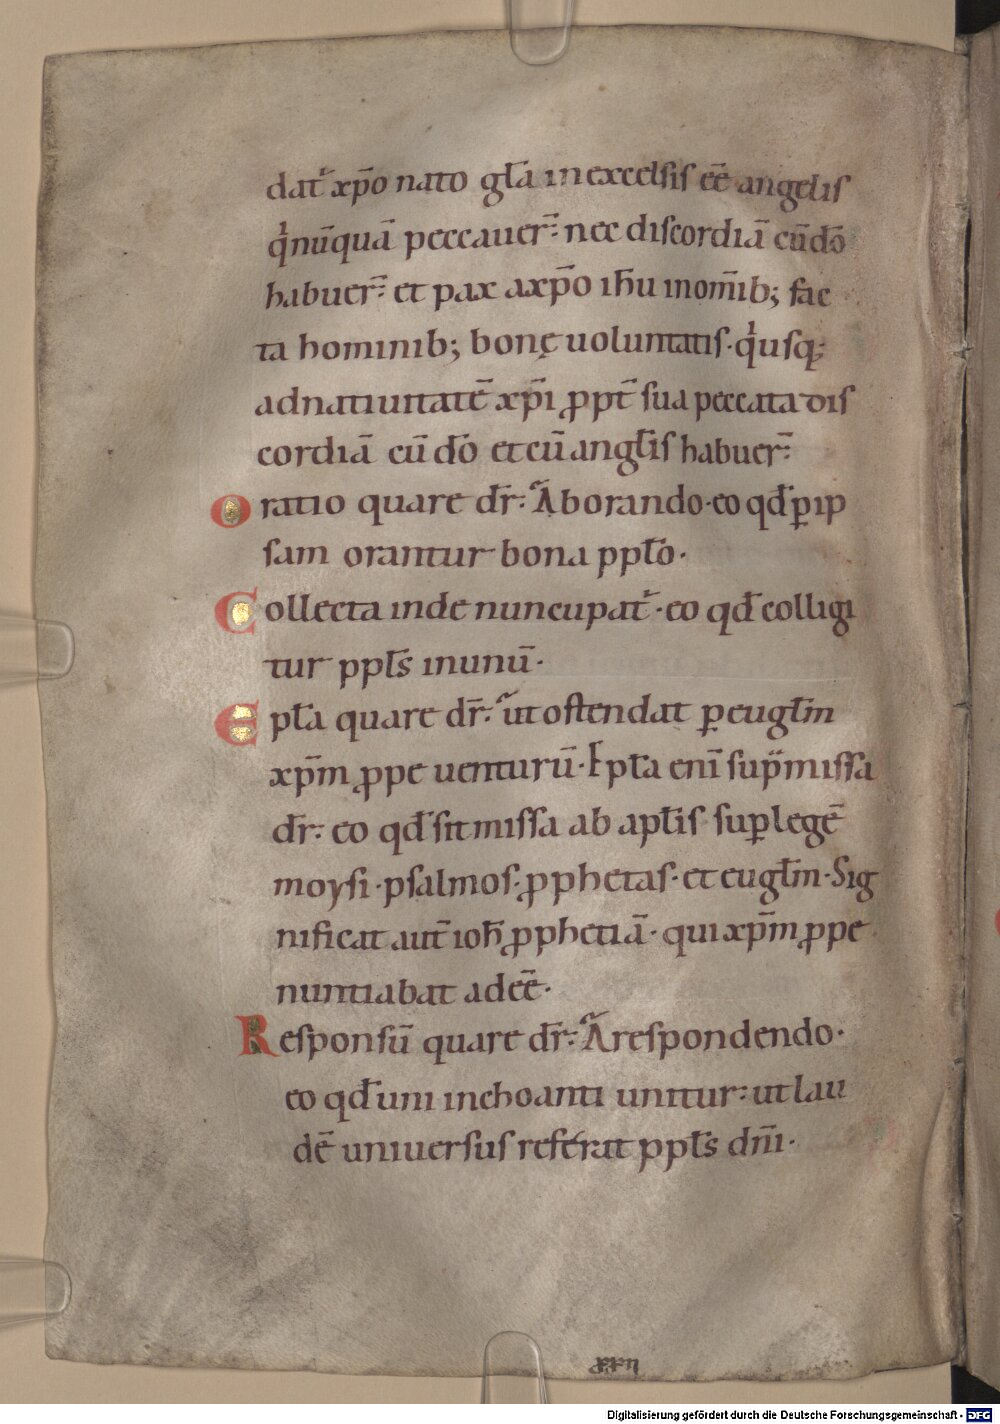 dat᷑ xp̄o nato gl̄a in excelsis eē angelis
qͥ nūquā peccauer̄: nec discordiā cū dō
habuer̄: et pax a xp̄o ih̄u in om̄ib; fac
ta hominib; bonę uoluntatis · qͥ usq;
ad natiuitatē xp̄i ꝓpt̄ sua peccata dis
cordiā cū dō et cū angl̄is habuer̄:
Oratio quare dr̄: Ab orando · eo qd̄ ꝑ ip
sam orantur bona ppl̄o ·
Collecta inde nuncupat᷑ · eo qd̄ colligi
tur ppl̄s in unū ·
Epl̄a quare dr̄: ut ostendat ꝑ eugl̄m
xp̄m ꝓpe uenturū · Epl̄a enī sup̄missa
dr̄: eo qd̄ sit missa ab apl̄is suꝑ legē
moysi · psalmos · ꝓphetas · et eugl̄m · Sig
nificat aut̄ ioh̄ ꝓphetiā · qui xp̄m ꝓpe
nuntiabat adeē ·
Responsū quare dr̄: A respondendo ·
eo qd̄ uni inchoanti unitur: ut lau
dē uniuersus referat ppl̄s dn̄i ·
xxii
Digitalisierung gefördert durch die Deutsche Forschungsgemeinschaft - DFG